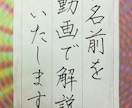 名前を
動画で解説
いたします